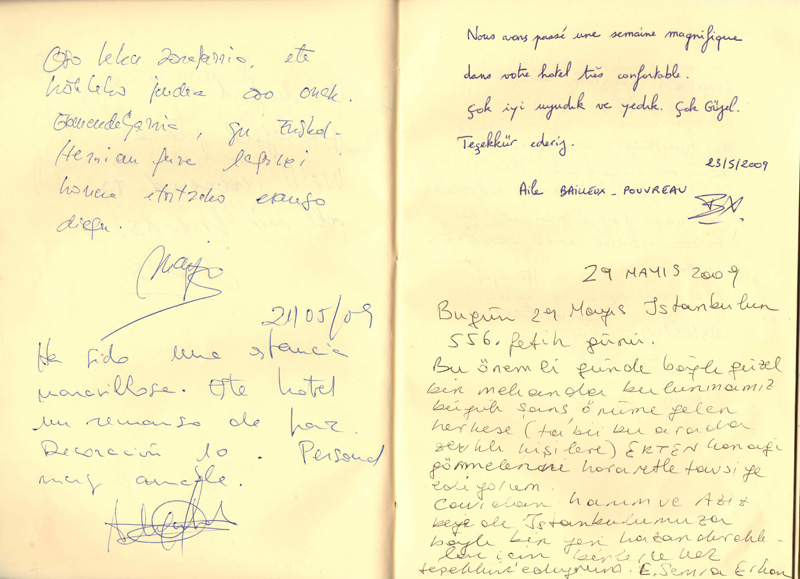 Oso leku zoragarria, eta
jendea oso onak.
Gomendagarria, gu Euskal-
Herrian gure lagunei
honera etortzeko esango
diegu.
21/05/09
Ha sido una estancia
maravillosa. Este hotel
un remanso de paz.
Decoración 10. Personal
muy amable.
Nous avons passé une semaine magnifique
dans votre hotel très confortable.
Çok iyi uyuduk ve yedik. Çok Güzel.
Teşekkür ederiz.
23/5/2009
Aile BAILLEUX - POUVREAU
29 MAYIS 2009
Bugün 29 Mayıs İstanbulun
556. fetih günü.
Bu önemli günde böyle güzel
bir mekanda bulunmamız
büyük şans önüme gelen
herkese (tabii bu arada
zevkli kişilere) ERTEN konağı
görmelerini hararetle tavsiye
ediyorum.
Cavidan hanım ve Aziz
beye de İstanbulumuza
böyle bir yeri kazandırdık-
ları için binlerce kez
teşekkür ediyorum. E. Semra Erkan